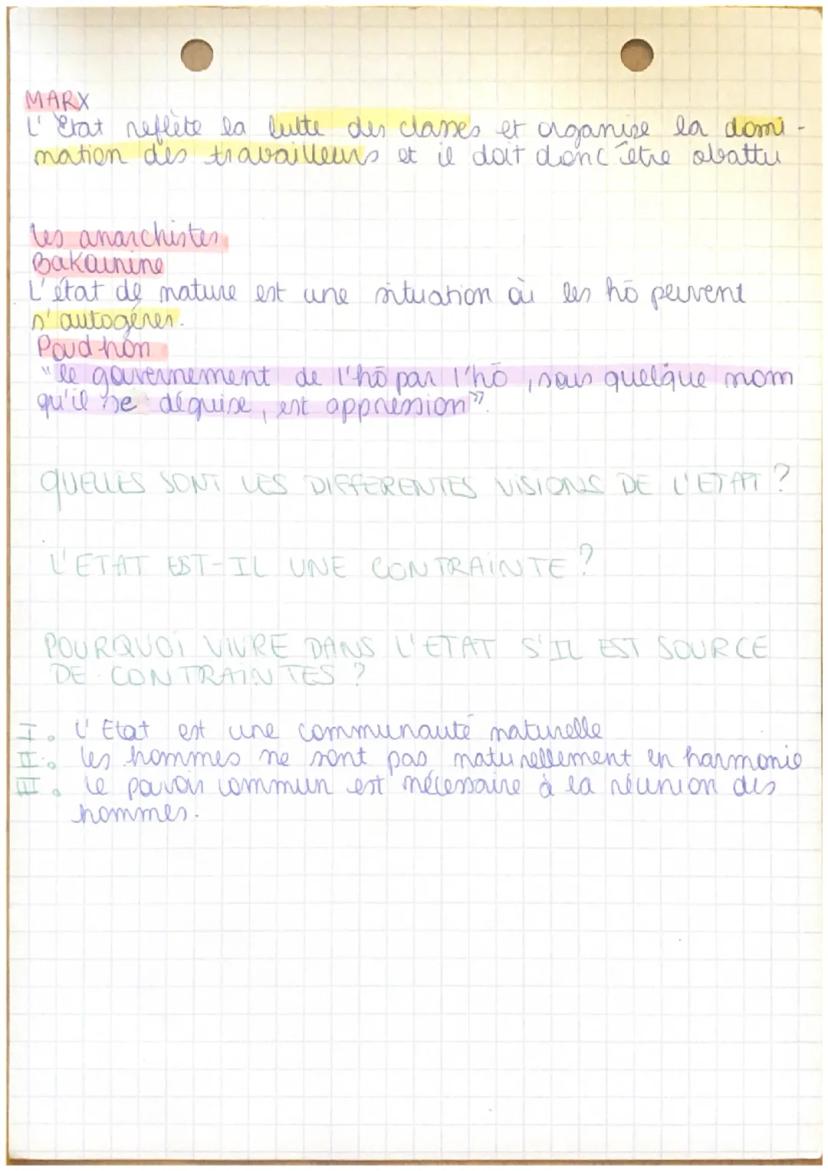 MARX
L'Etat reflète la lutte des classes et organise la domi-
nation des travailleurs et il doit donc être abattu
Les anarchistes
Bakounine
L'état de nature est une situation où les hō peuvent
s'autogérer.
Poudhon
"le gouvernement de l'hō par l'hō, sous quelque nom
qu'il se déguise, est oppression".
QUELLES SONT LES DIFFERENTES VISIONS DE L'ETAT ?
L'ETAT EST-IL UNE CONTRAINTE ?
POURQUOI VIVRE DANS L'ETAT S'IL EST SOURCE
DE CONTRAINTES ?
I. L'Etat est une communauté naturelle
II. Les hommes ne sont pas naturellement en harmonie
III. Le pouvoir commun est nécessaire à la réunion des
hommes.